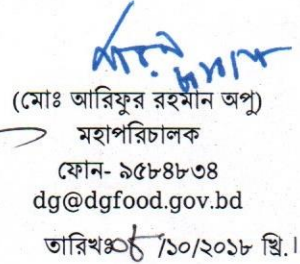 (মোঃ আরিফুর রহমান অপু)
মহাপরিচালক
ফোন- ৯৫৮৪৮৩৪
dg@dgfood.gov.bd
তারিখঃ /১০/২০১৮ খ্রি.।